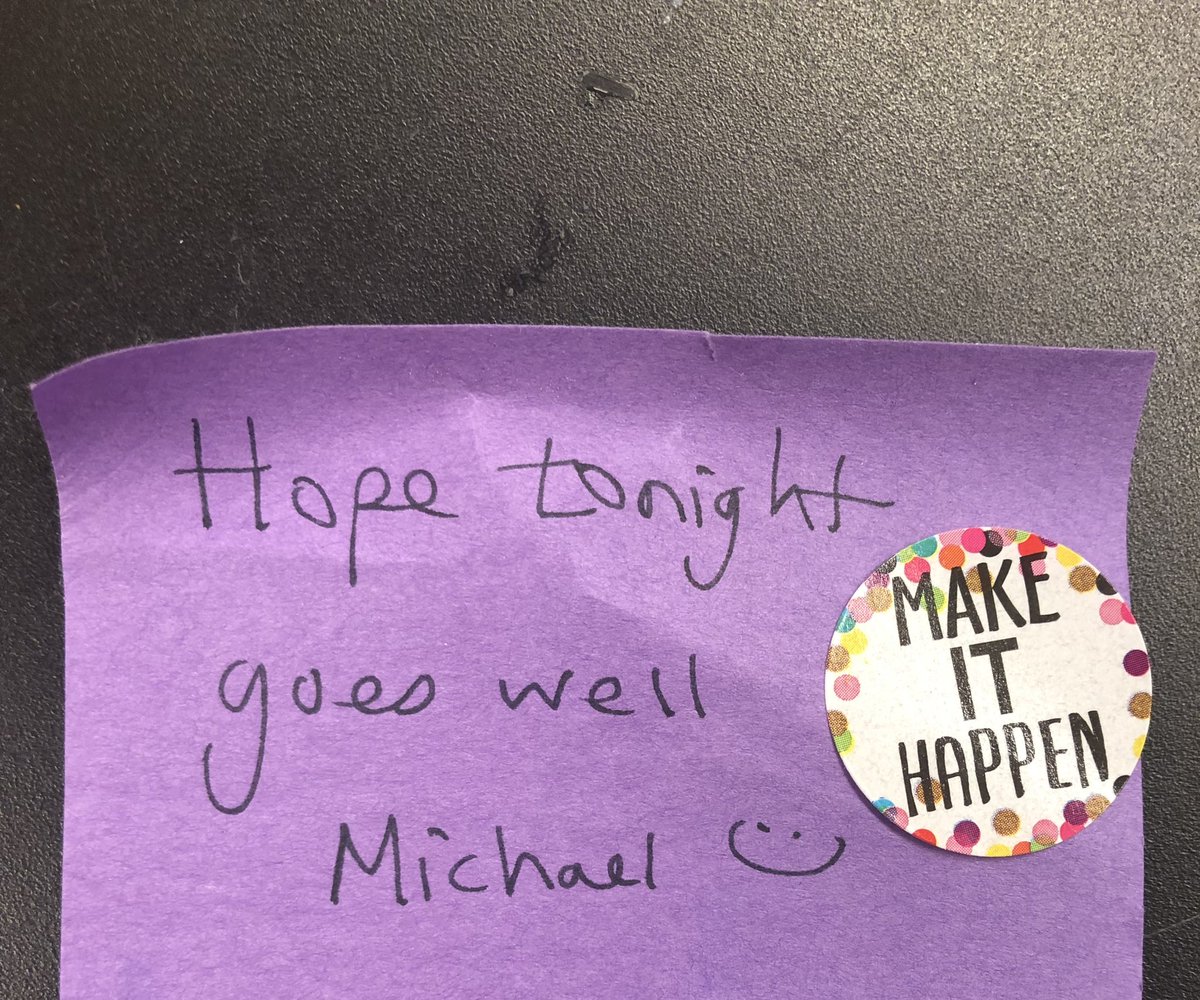 Hope tonight
goes well
Michael
MAKE
IT
HAPPEN